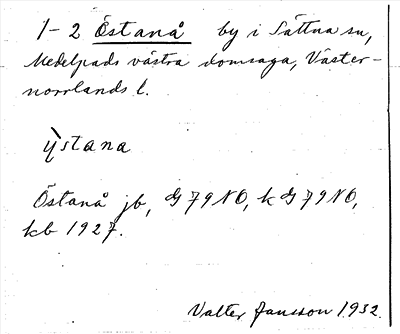 1-2 Östanå by i Sättna sn,
Medelpads västra domsaga, Väster-
norrlands l.
ỳstana
Östanå jb, G 79 NO, k G 79 NO,
kb 1927.
Valter Jansson 1932.